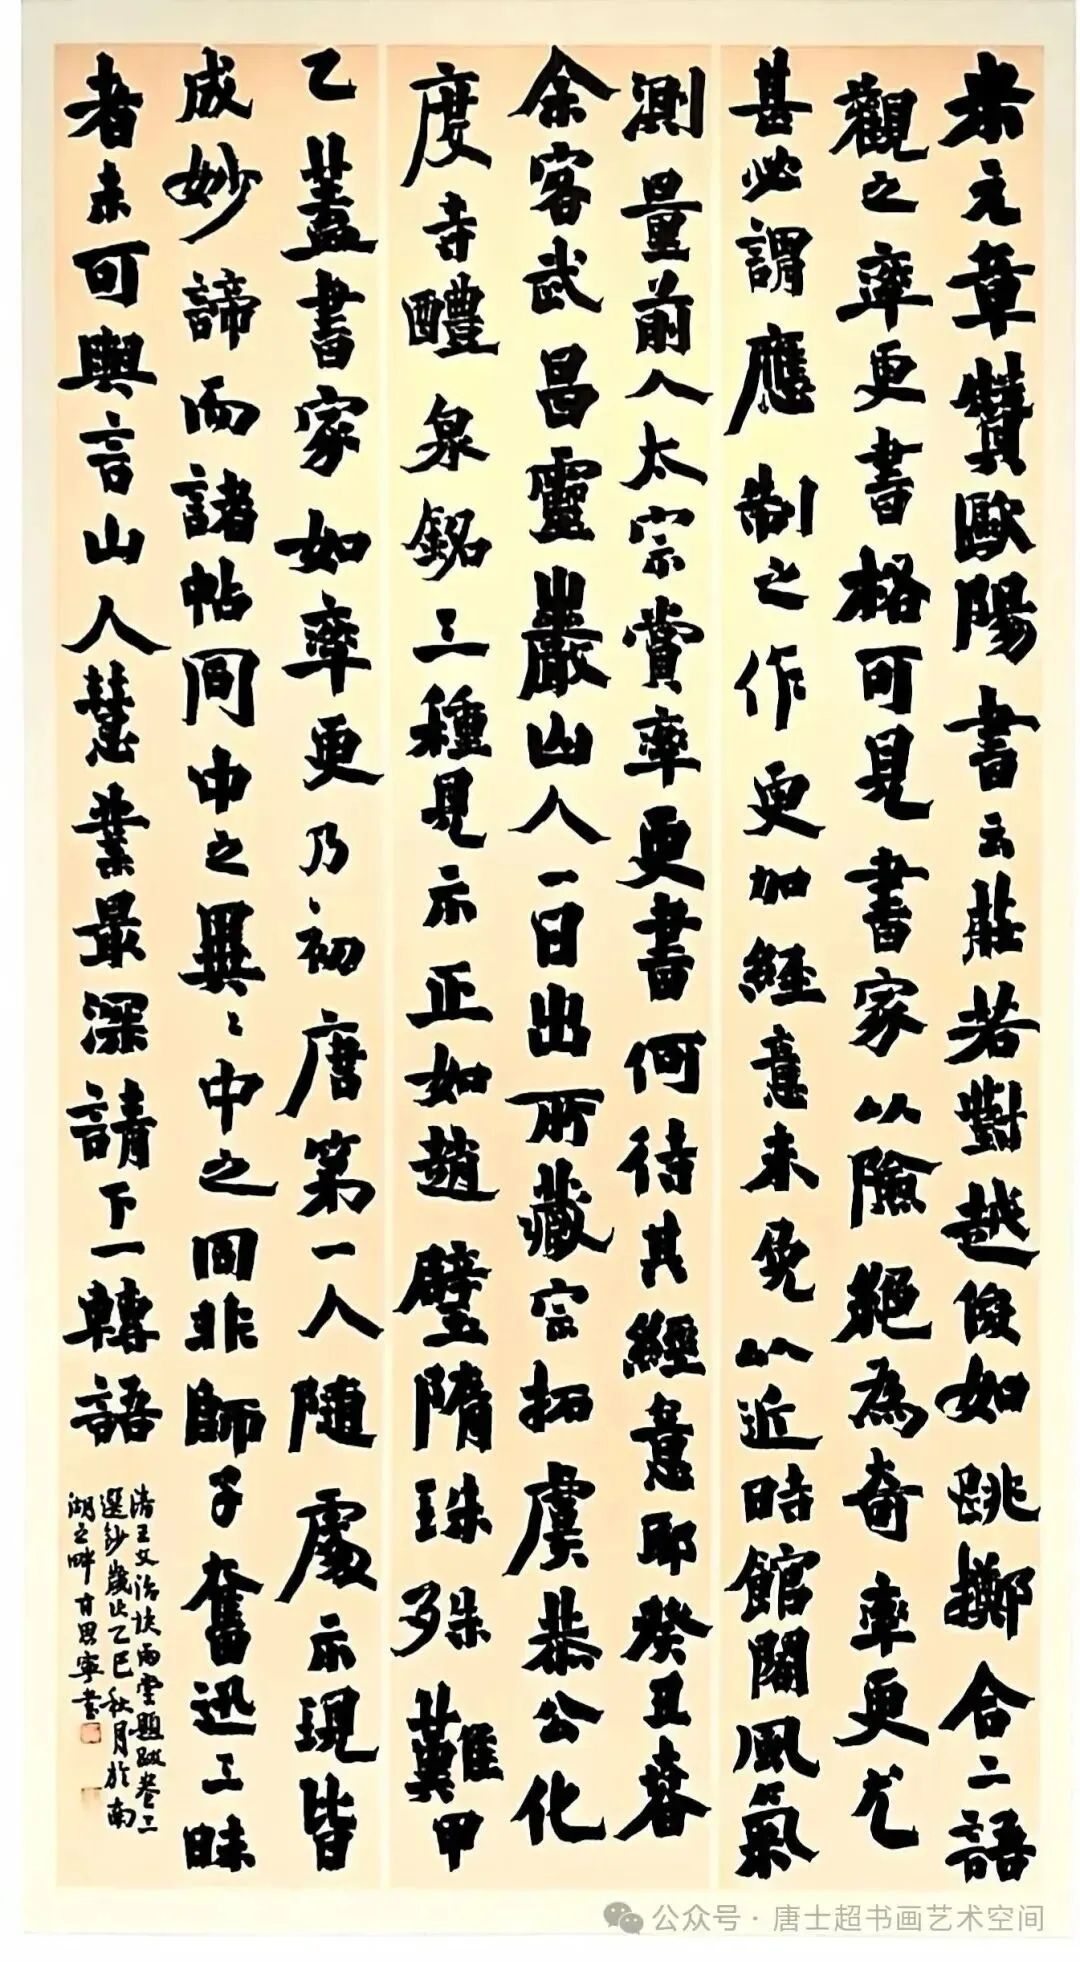 米元章贊歐陽書云莊若對越俊如跳擲合二語
觀之率更書格可見書家以險絕為奇率更尤
甚必謂應制之作更加經意未免以近時館閣風氣
測量前人太宗賞率更書何待其經意耶癸丑暮
余客武昌靈巖山人一日出所藏宋拓虞恭公化
度寺醴泉銘三種見示正如趙璧隋珠殊難甲
乙蓋書家如率更乃初唐第一人隨處示現皆
成妙諦而諸帖同中之異異中之同非師子奮迅三昧
者未可與言山人慧業最深請下一轉語
清王文治快雨堂題跋卷三
選鈔歲次乙巳秋月於南
湖之畔甘思寧書
公众号·唐士超书画艺术空间